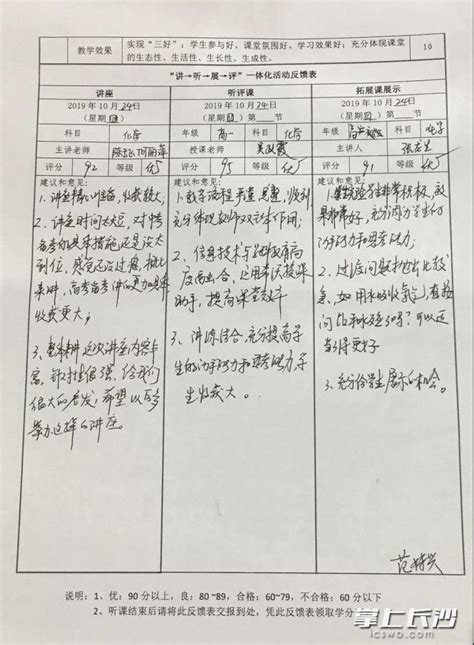 教学效果
实现“三好”：学生参与好、课堂氛围好、学习效果好；充分体现课堂
的生态性、生活性、生长性、生成性。
10
“讲→听→展→评”一体化活动反馈表
讲座
2019年10月24日
（星期四）
科目 化学
主讲老师
评分 92 等级 优
建议和意见：
1、讲座精心准备，收获较大；
2、讲座时间太短，对中考
备考的具体措施还是没太
到位，感觉还没过瘾，相比
来讲，高考备考讲的更加具体
收获更大；
3、整体来讲这次讲座内容丰
富，针对性很强，给我们
很大的启发，希望以后多
举办这样的讲座。
听评课
2019年10月24日
（星期四）第 节
年级 高一 科目 化学
授课老师 吴政霞
评分 95 等级 优
建议和意见：
1、教学流程严谨
充分体现教师双主体作用；
2、信息技术与学科教育高
度融合，运用希沃授课
助手，提高课堂效率
3、讲练结合，充分提高学
生的动手能力和思考能力，学
生收获大。
拓展课展示
2019年10月24日
（星期四）第 节
年级 科目 化学
主讲老师
评分 91 等级 优
建议和意见：
1、实验学生非常积极，效
果非常好，充分调动学生的
动手能力和思考能力；
2、过渡问题抛出比较
急，如用水吸收氨气，直接
问
3、充分给学生展示的机会。
说明：1、优：90分以上，良：80~89，合格：60~79，不合格：60分以下
2、听课结束后请将此反馈表交报到处，凭此反馈表领取学分
掌上长沙
icswb.com